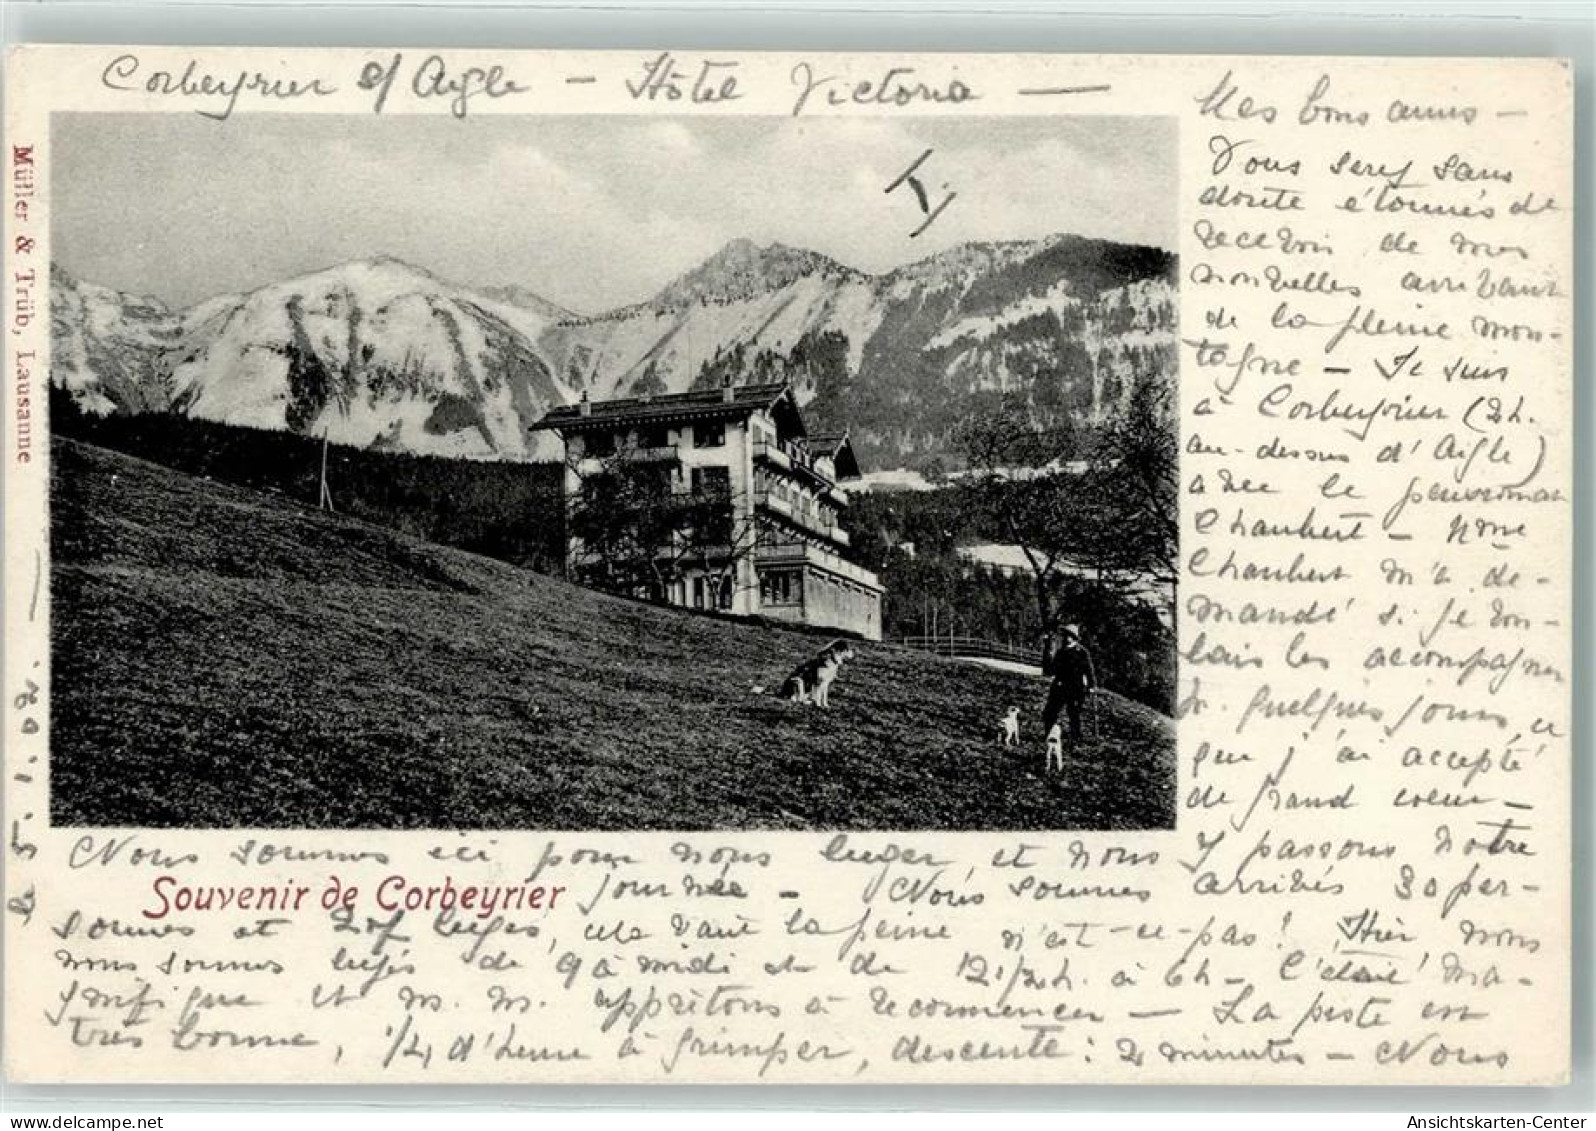 Corbeyrier s/ Aigle – Hôtel Victoria —
Mes bons amis –
Vous serez sans
doute étonnés de
recevoir de mes
nouvelles arrivant
de la pleine mon-
tagne – Je suis
à Corbeyrier (2h.
au-dessus d'Aigle)
avec le pensionnat
Chaubert – Mme
Chaubert m'a de-
mandé si je vou-
lais les accompagner
qulques jours, ce
que j'ai accepté
de grand coeur –
Nous sommes ici pour nous luger, et nous y passons notre
journée – Nous sommes arrivés 30 per-
sonnes et luges, cela vaut la peine n'est-ce-pas! Hier nous
nous sommes lugés de 9 à midi et de 1 1/2 h. à 6h – C'était ma-
gnifique et n. n. apprêtons à recommencer – La piste est
très bonne, 1/4 d'heure à grimper, descente: 2 minutes – Nous
Souvenir de Corbeyrier
Müller & Trüb, Lausanne
le 5.1.02.
20182622
Ansichtskarten-Center